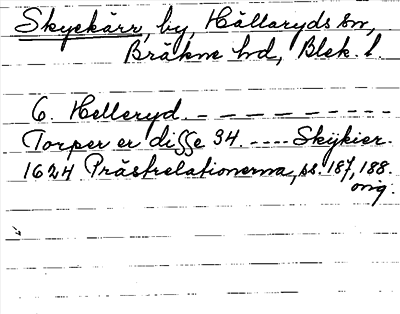 Skyekärr, by, Hällaryds sn,
Bräkne hd, Blek. l.
6. Helleryd. – – – – – – – – –
Torper er disse 34. ---- Skijkier.
1624 Prästrelationerna, ss. 187, 188.
orig.